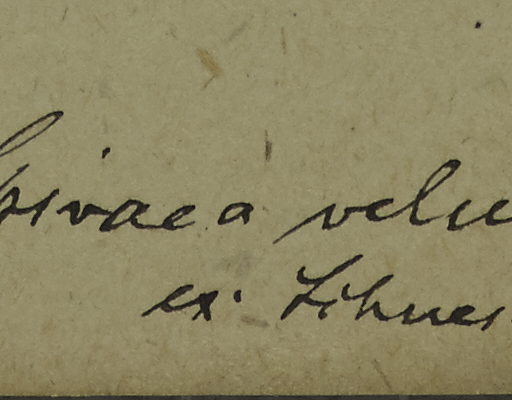 Spiraea velu
ex. Lihnes